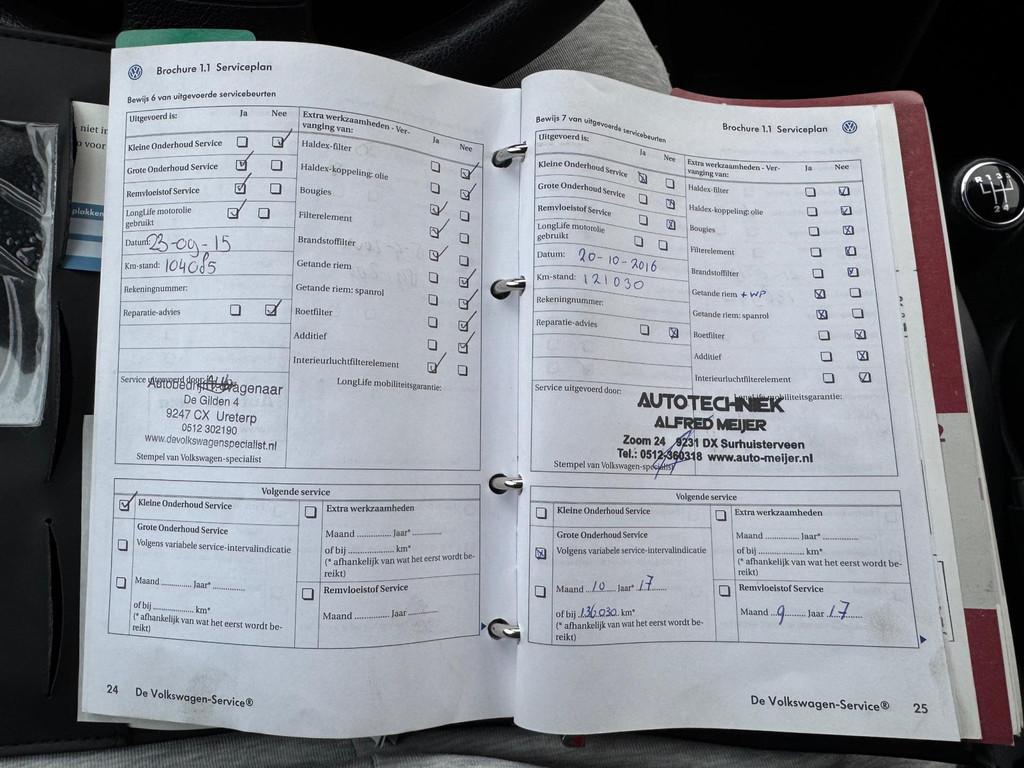 Brochure 1.1 Serviceplan
Bewijs 6 van uitgevoerde servicebeurten
Uitgevoerd is: Ja Nee
Kleine Onderhoud Service
Grote Onderhoud Service
Remvloeistof Service
LongLife motorolie
gebruikt
Datum: 23-09-15
Km-stand: 104085
Rekeningnummer:
Reparatie-advies
Extra werkzaamheden - Ver-
vanging van: Ja Nee
Haldex-filter
Haldex-koppeling: olie
Bougies
Filterelement
Brandstoffilter
Getande riem
Getande riem: spanrol
Roetfilter
Additief
Interieurluchtfilterelement
LongLife mobiliteitsgarantie:
Service uitgevoerd door:
Autobedrijf Wagenaar
De Gilden 4
9247 CX Ureterp
0512 302190
www.devolkswagenspecialist.nl
Stempel van Volkswagen-specialist
Volgende service
Kleine Onderhoud Service
Grote Onderhoud Service
Volgens variabele service-intervalindicatie
Maand ............. Jaar* .............
of bij .................. km*
(* afhankelijk van wat het eerst wordt be-
reikt)
Extra werkzaamheden
Maand ............. Jaar* .............
of bij .................. km*
(* afhankelijk van wat het eerst wordt be-
reikt)
Remvloeistof Service
Maand ............. Jaar .............
24 De Volkswagen-Service®
Bewijs 7 van uitgevoerde servicebeurten
Brochure 1.1 Serviceplan
Uitgevoerd is: Ja Nee
Kleine Onderhoud Service
Grote Onderhoud Service
Remvloeistof Service
LongLife motorolie
gebruikt
Datum: 20-10-2016
Km-stand: 121030
Rekeningnummer:
Reparatie-advies
Extra werkzaamheden - Ver-
vanging van: Ja Nee
Haldex-filter
Haldex-koppeling: olie
Bougies
Filterelement
Brandstoffilter
Getande riem + WP
Getande riem: spanrol
Roetfilter
Additief
Interieurluchtfilterelement
LongLife mobiliteitsgarantie:
Service uitgevoerd door:
AUTOTECHNIEK
ALFRED MEIJER
Zoom 24 9231 DX Surhuisterveen
Tel.: 0512-360318 www.auto-meijer.nl
Stempel van Volkswagen-specialist
Volgende service
Kleine Onderhoud Service
Grote Onderhoud Service
Volgens variabele service-intervalindicatie
Maand 10 Jaar* 17
of bij 136030 km*
(* afhankelijk van wat het eerst wordt be-
reikt)
Extra werkzaamheden
Maand ............. Jaar* .............
of bij .................. km*
(* afhankelijk van wat het eerst wordt be-
reikt)
Remvloeistof Service
Maand 9 Jaar 17
De Volkswagen-Service® 25
niet in
plakken
R 1 3 5
2 4